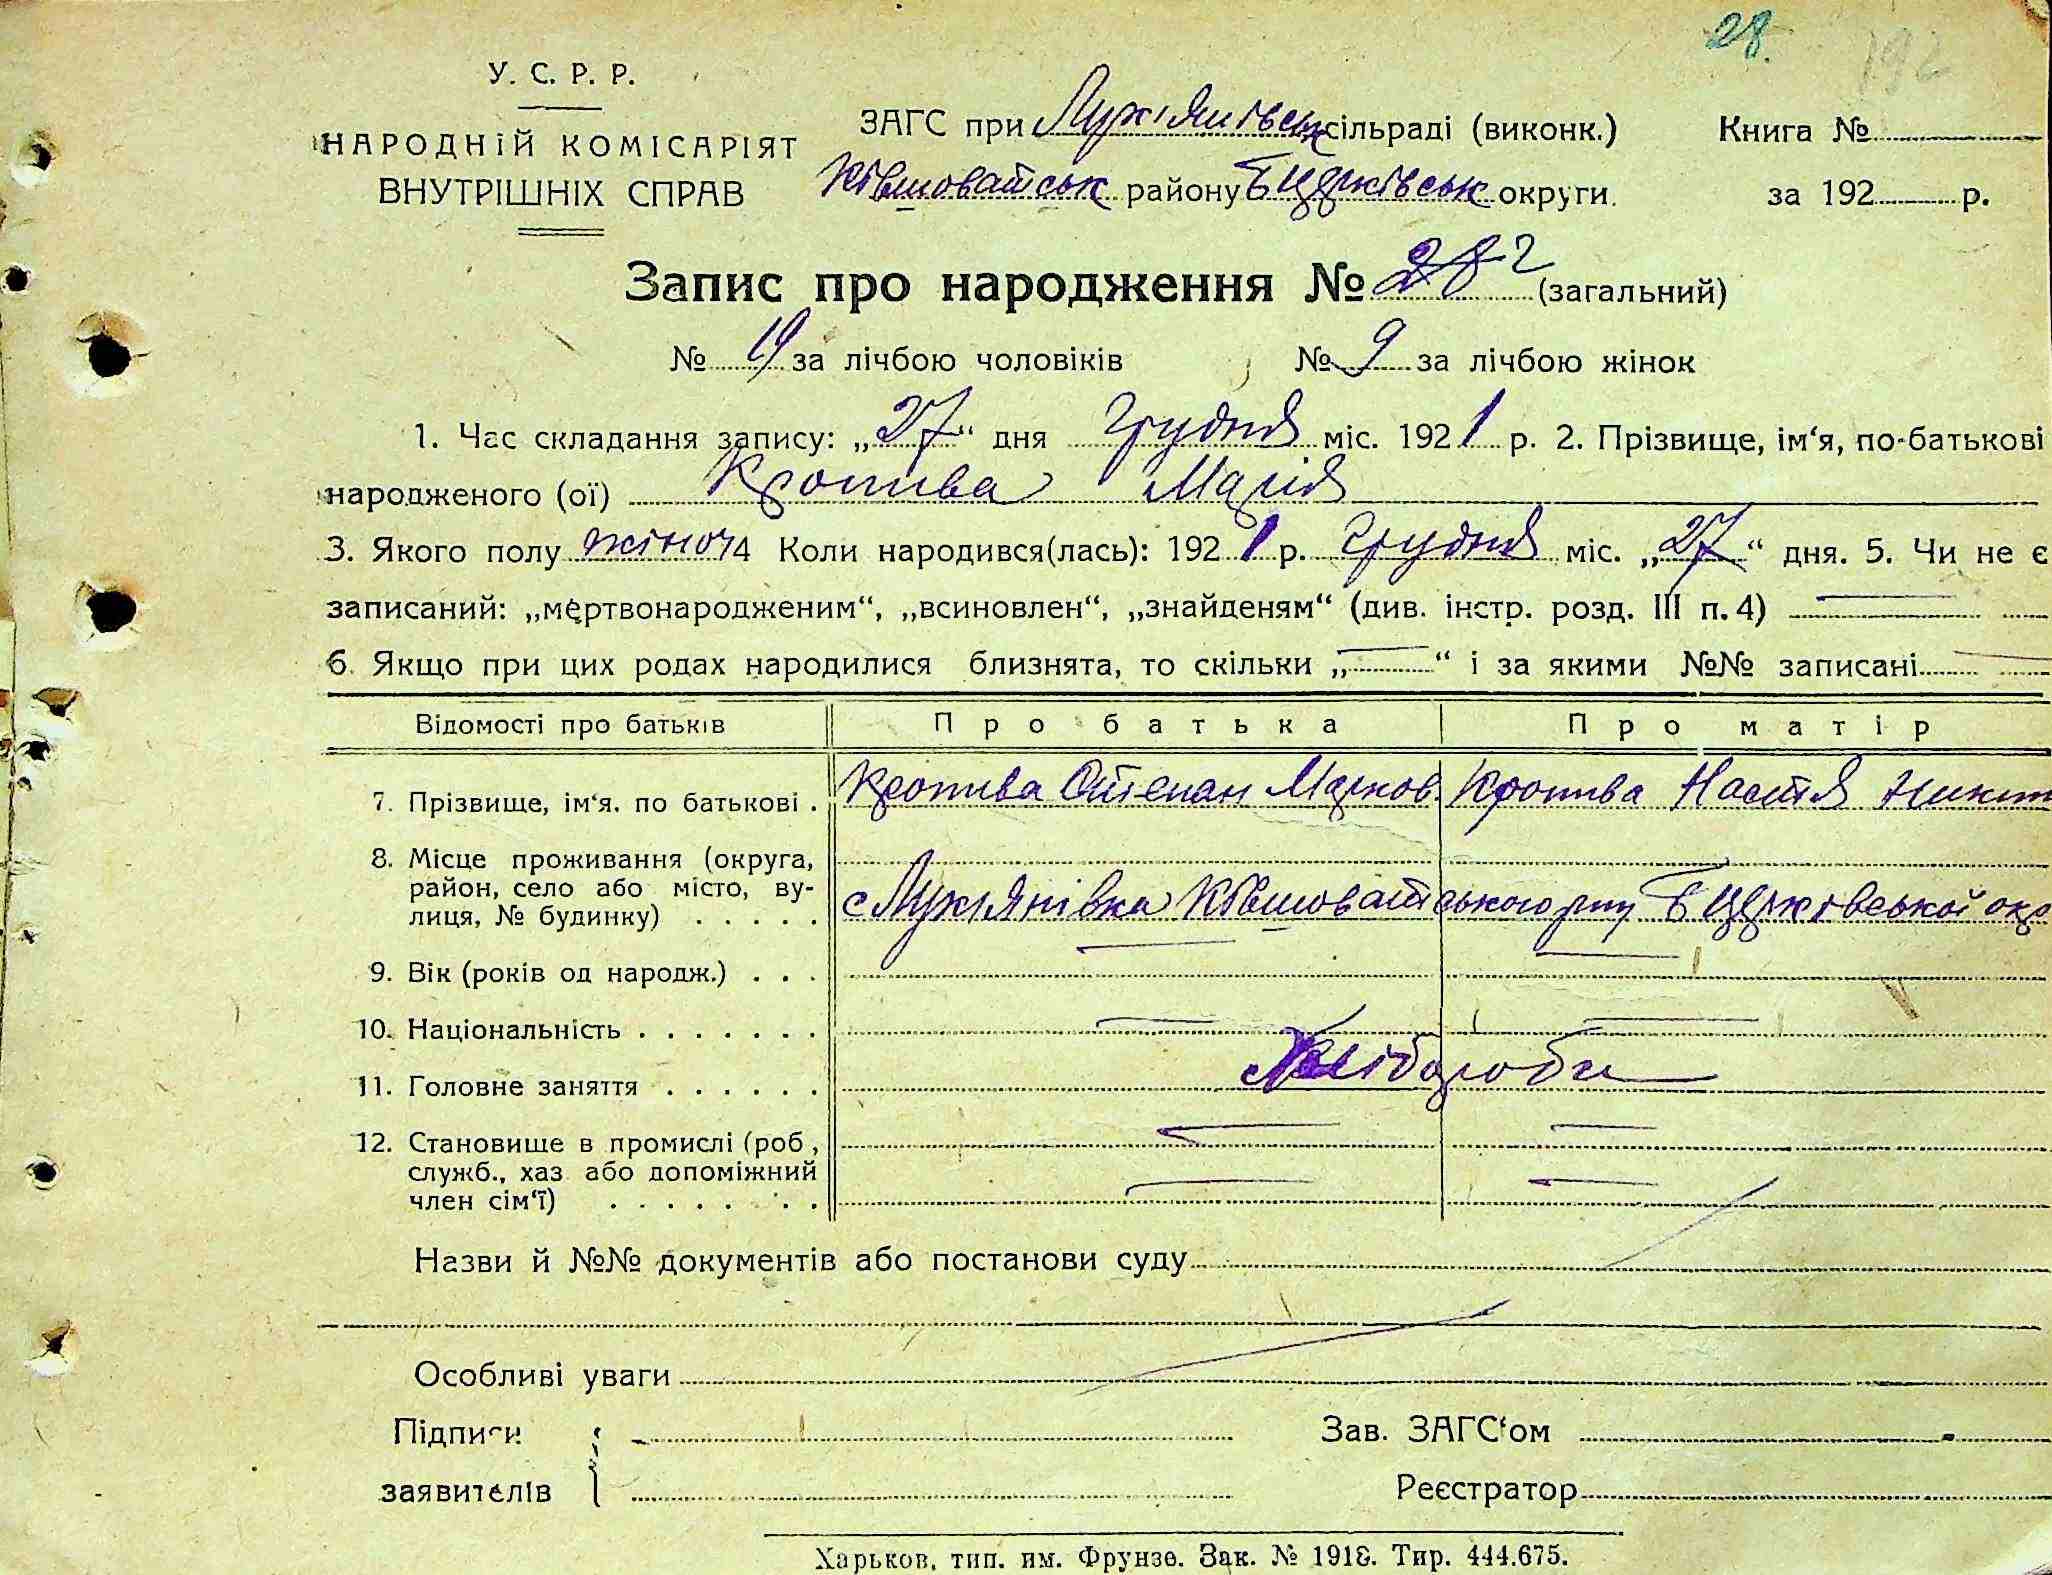 28.
192
У. С. Р. Р.
НАРОДНІЙ КОМІСАРІЯТ
ВНУТРІШНІХ СПРАВ
ЗАГС при Лукіянівськ сільраді (виконк.)
Книга №
Ківшоватськ району Б Церківськ округи.
за 192 р.
Запис про народження № 28 2 (загальний)
№ 19 за лічбою чоловіків № 9 за лічбою жінок
1. Час складання запису: „27“ дня Грудня міс. 1921 р. 2. Прізвище, ім‘я, по-батькові
народженого (ої) Кропива Марія
3. Якого полу жіноч 4 Коли народився(лась): 1921 р. Грудня міс. „27“ дня. 5. Чи не є
записаний: „мертвонародженим“, „всиновлен“, „знайденям“ (див. інстр. розд. III п. 4)
6. Якщо при цих родах народилися близнята, то скільки „ “ і за якими №№ записані
Відомості про батьків Про батька Про матір
7. Прізвище, ім‘я. по батькові . Кропива Степан Марков. Кропива Настя Никит
8. Місце проживання (округа,
район, село або місто, ву-
лиця, № будинку) . . . . . с Лукіянівка Ківшоватського р-ну Б Церковської окр
9. Вік (років од народж.) . . .
10. Національність . . . . . . .
11. Головне заняття . . . . . . Хлібороби
12. Становище в промислі (роб ,
служб., хаз або допоміжний
член сім‘ї) . . . . . . .
Назви й №№ документів або постанови суду
Особливі уваги
Підписи
заявителів
Зав. ЗАГС‘ом
Реєстратор
Харьков, тип. им. Фрунзе. Зак. № 1918. Тир. 444.675.